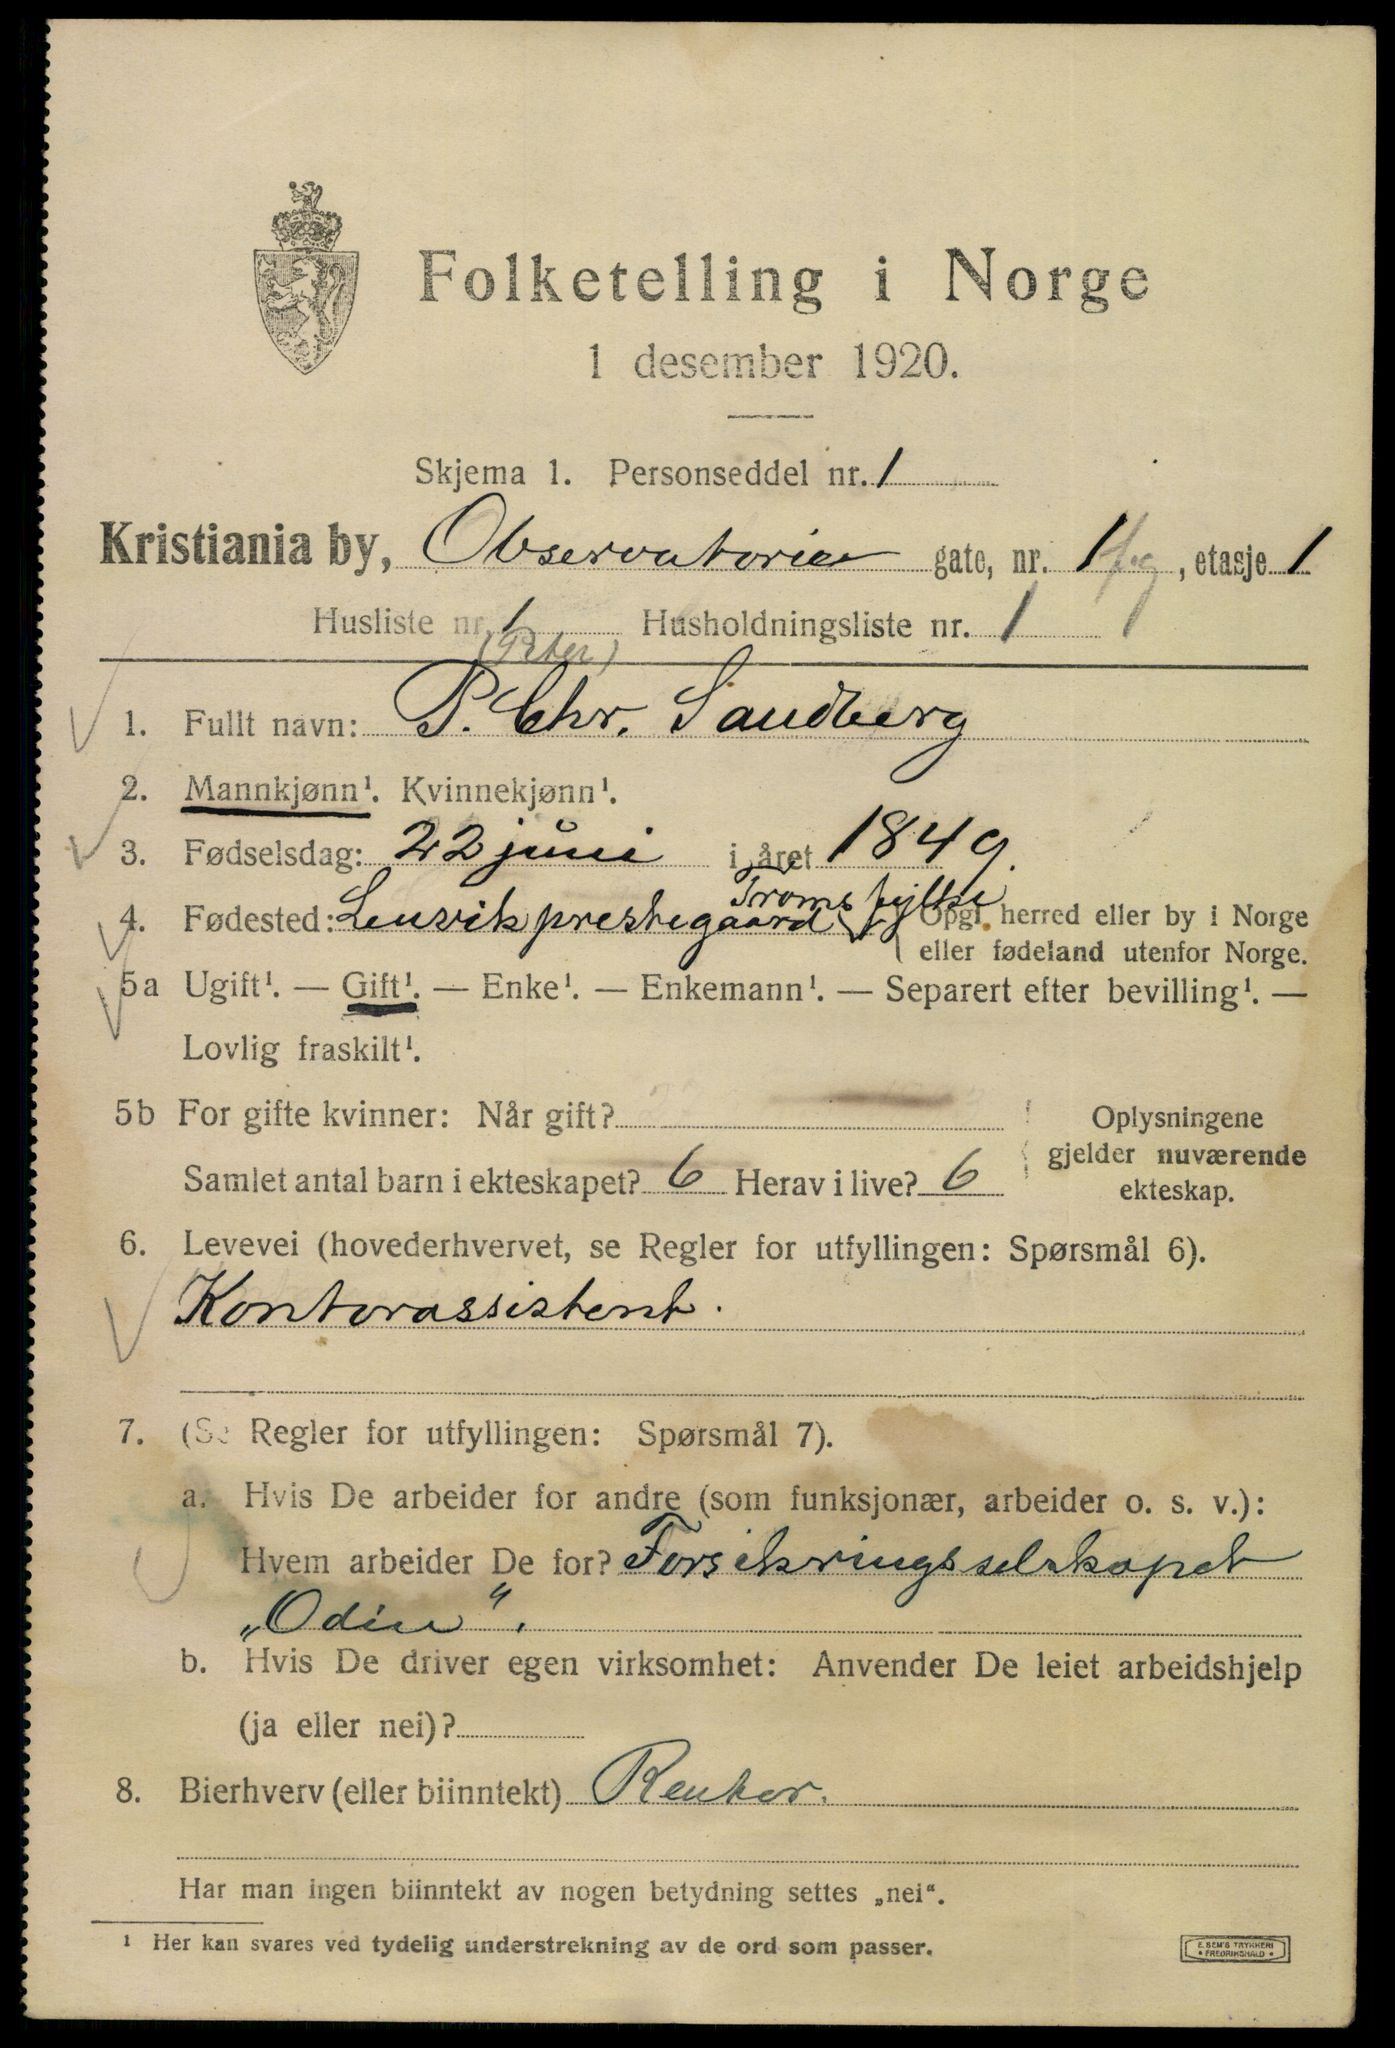 Folketelling i Norge
1 desember 1920.
Skjema 1. Personseddel nr. 1
Kristiania by, Observatorie gate, nr. 1 fg, etasje 1
Husliste nr. 1 Husholdningsliste nr. 1 1
(Peter)
1. Fullt navn: P. Chr. Sandberg
2. Mannkjønn¹. Kvinnekjønn¹.
3. Fødselsdag: 22 juni i året 1849.
Troms fylke
4. Fødested: Lenvik prestegaard { Opgi herred eller by i Norge
eller fødeland utenfor Norge.
5a Ugift¹. — Gift¹. — Enke¹. — Enkemann¹. — Separert efter bevilling¹. —
Lovlig fraskilt¹.
5b For gifte kvinner: Når gift?
Samlet antal barn i ekteskapet? 6 Herav i live? 6
Oplysningene
gjelder nuværende
ekteskap.
6. Levevei (hovederhvervet, se Regler for utfyllingen: Spørsmål 6).
Kontorassistent.
7. (Se Regler for utfyllingen: Spørsmål 7).
a. Hvis De arbeider for andre (som funksjonær, arbeider o. s. v.):
Hvem arbeider De for? Forsikringsselskapet
„Odin“.
b. Hvis De driver egen virksomhet: Anvender De leiet arbeidshjelp
(ja eller nei)?
8. Bierhverv (eller biinntekt) Renter.
Har man ingen biinntekt av nogen betydning settes „nei“.
¹ Her kan svares ved tydelig understrekning av de ord som passer.
E. SEM'S TRYKKERI
• FREDRIKSHALD •